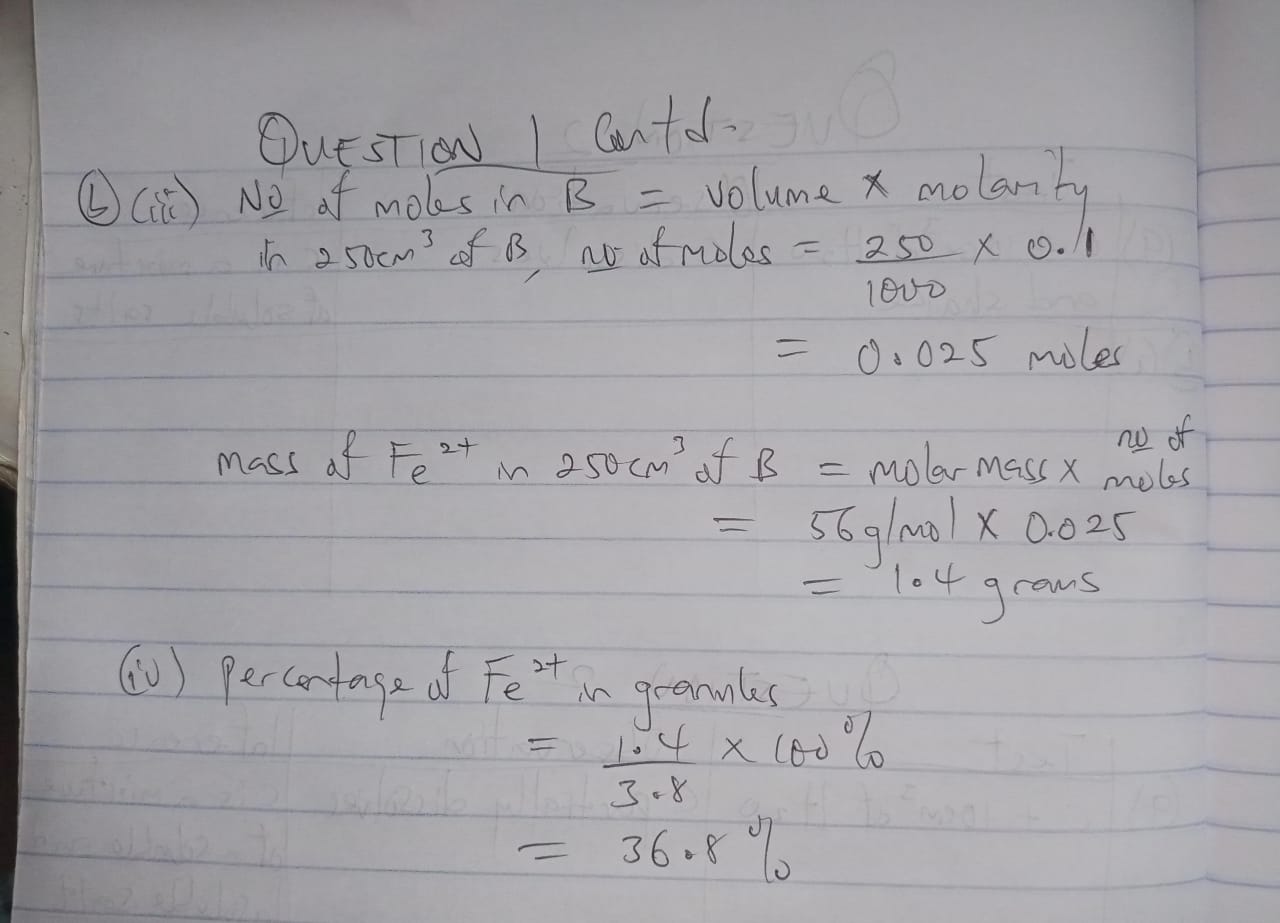 QUESTION 1 Cont'd
(b) (iii) No of moles in B = volume x molarity
in 250cm³ of B, no of moles = 250/1000 x 0.1
= 0.025 moles
mass of Fe²⁺ in 250cm³ of B = molar mass x no of moles
= 56g/mol x 0.025
= 1.4 grams
(iv) Percentage of Fe²⁺ in granules
= 1.4/3.8 x 100%
= 36.8%